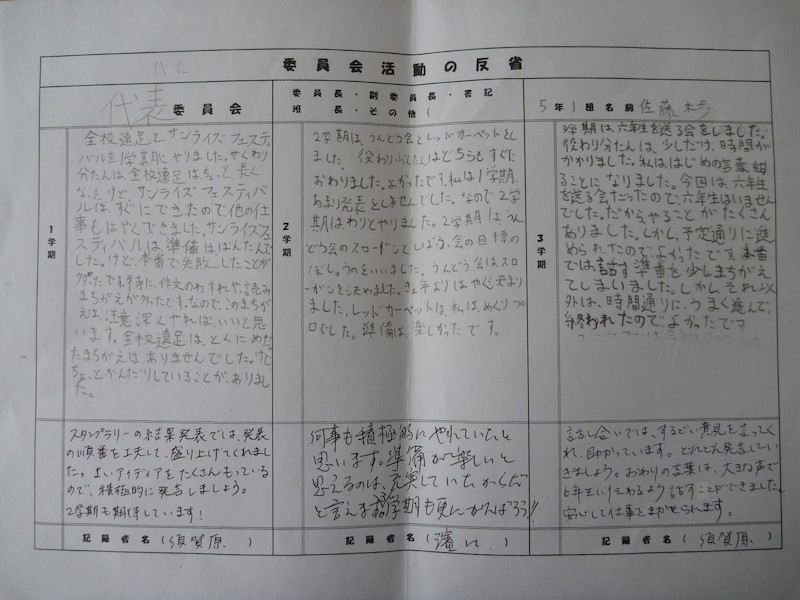 委員会活動の反省
代表委員会
委員長・副委員長・書記
班長・その他(
5年1組名前 佐藤
1学期
全校遠足とサンライズフェスティ
バルを1学期にやりました。やくわり
分たんは、全校遠足は、ちょっと長く
なったけど、サンライズフェスティバ
ルは、すぐにできたので他の仕
事もはやくできました。サンライズフェ
スティバルは準備は、ばんたんで
した。けど、本番で失敗したことが
多かったです。特に、作文のわすれや、読み
まちがえが多かったです。なので、このまちが
えは、注意深くやれば、いいと思
います。全校遠足は、とくにめだっ
たまちがえは、ありませんでした。けど
ちょっとかんだりしていることが、ありまし
た。
2学期
2学期は、うんどう会とレッドカーペットをし
ました。役わりぶんたんはどちらもすぐに
おわりました。よかったです。私は1学期、
あまり発表をしませんでした。なので2学
期はわりとやりました。2学期は、うん
どう会のスローガンとしばふ会の目標の
ぼしゅうのをいいました。うんどう会は、スロ
ーガンを決めました。きょ年よりはやく決まり
ました。レッドカーペットは、私は、めくりプ
ログした。準備は、楽しかったです。
3学期
3学期は、六年生を送る会をしました。
役わり分たんは、少しだけ、時間が
かかりました。私は、はじめの言葉
ることになりました。今回は、六年生
を送る会だったので、六年生はいません
でした。だからやることがたくさん
ありました。しかし、予定通りに進
められたのでよかったです。本番
では、話す準番を少しまちがえ
てしまいました。しかし、それ以
外は、時間通りに、うまく進んで、
終われたのでよかったです
スタンプラリーの結果発表では、発表
の順番を工夫して、盛り上げてくれまし
ました。よいアイディアをたくさんもっている
ので、積極的に発言しましょう。
2学期も期待しています!
何事も積極的にやれていたと
思います。準備が楽しいと
思えるのは、充実していたからだ
と言えます。3学期も更にがんばろう!!
話し合いでは、するどい意見を言ってく
れ、助かっています。どんどん発言してい
きましょう。おわりの言葉は、大きな声で
6年生に伝わるよう話すことができました。
安心して仕事をまかせられます。
記録者名(須賀原)
記録者名(濱)
記録者名(須賀原)